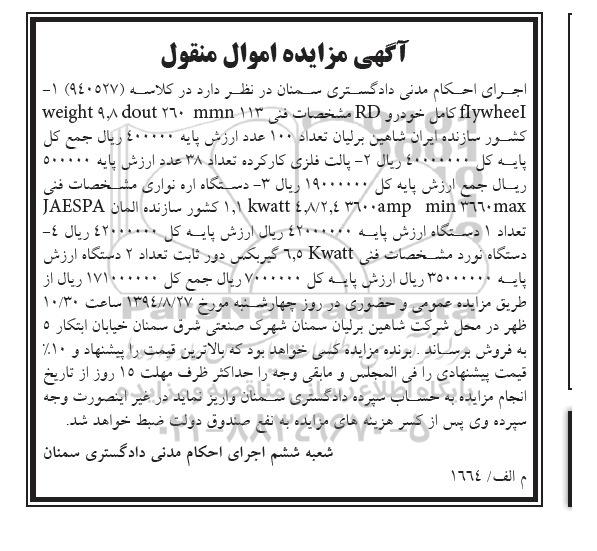 آگهی مزایده اموال منقول
اجرای احکام مدنی دادگستری سمنان در نظر دارد در کلاسه (۹۴۰۵۲۷) ۱-
flywheel کامل خودرو RD مشخصات فنی ۱۱۳ weight ۹٫۸ dout ۲۶۰ mmn
کشور سازنده ایران شاهین برلیان تعداد ۱۰۰ عدد ارزش پایه ۴۰۰۰۰۰ ریال جمع کل
پایه کل ۴۰۰۰۰۰۰۰ ریال ۲- پالت فلزی کارکرده تعداد ۳۸ عدد ارزش پایه ۵۰۰۰۰۰
ریال جمع ارزش پایه کل ۱۹۰۰۰۰۰۰ ریال ۳- دستگاه اره نواری مشخصات فنی
۱٫۱ kwatt ۴٫۸/۲٫۴ ۳۶۰۰amp min ۳۶۶۰max کشور سازنده المان JAESPA
تعداد ۱ دستگاه ارزش پایه ۴۲۰۰۰۰۰۰ ریال ارزش پایه کل ۴۲۰۰۰۰۰۰ ریال ۴-
دستگاه نورد مشخصات فنی ۶٫۵ Kwatt گیربکس دور ثابت تعداد ۲ دستگاه ارزش
پایه ۳۵۰۰۰۰۰۰ ریال ارزش پایه کل ۷۰۰۰۰۰۰ ریال جمع کل ۱۷۱۰۰۰۰۰۰ ریال از
طریق مزایده عمومی و حضوری در روز چهارشنبه مورخ ۱۳۹۴/۸/۲۷ ساعت ۱۰/۳۰
ظهر در محل شرکت شاهین برلیان سمنان شهرک صنعتی شرق سمنان خیابان ابتکار ۵
به فروش برساند . برنده مزایده کسی خواهد بود که بالاترین قیمت را پیشنهاد و ۱۰٪
قیمت پیشنهادی را فی المجلس و مابقی وجه را حداکثر ظرف مهلت ۱۵ روز از تاریخ
انجام مزایده به حساب سپرده دادگستری سمنان واریز نماید در غیر اینصورت وجه
سپرده وی پس از کسر هزینه های مزایده به نفع صندوق دولت ضبط خواهد شد.
شعبه ششم اجرای احکام مدنی دادگستری سمنان
م الف/ ۱۶۶۴
ParsNamadData
پایگاه اطلاع رسانی مناقصه و مزایده
۰۲۱-۸۸۳۴۹۶۷۰-۵